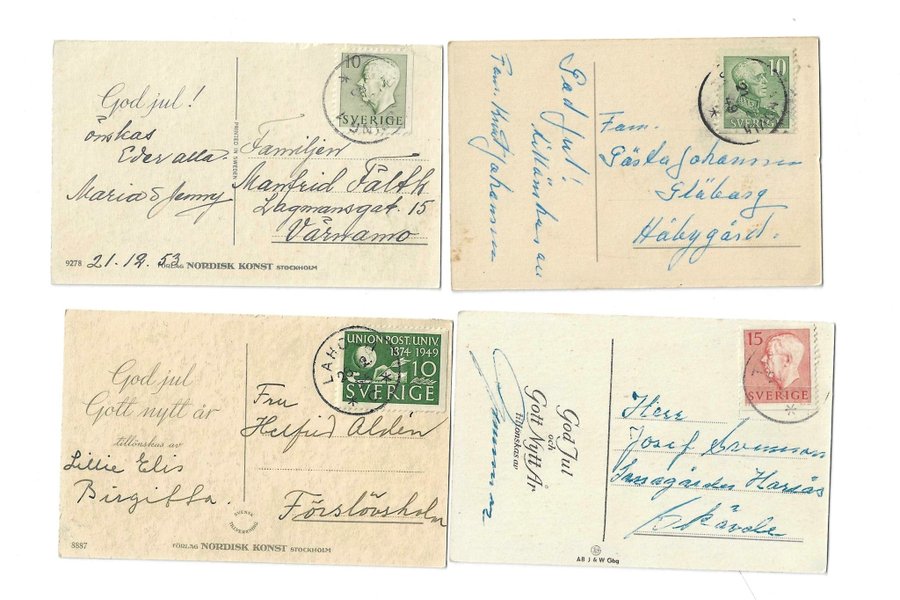 God jul!
önskas
Eder alla.
Maria & Jenny
21.12.53
9278
FÖRLAG NORDISK KONST STOCKHOLM
PRINTED IN SWEDEN
10
SVERIGE
Familjen
Manfrid Fälth
Lagmansgat. 15
Värnamo
God jul!
tillönskas av
Fam. Knut Johansson
10
SVERIGE
Fam.
Gösta Johansson
Glåbarg
Håbygård.
God jul
Gott nytt år
tillönskas av
Lillie Elis
Birgitta.
8887
SVENSK
TILLVERKNING
FÖRLAG NORDISK KONST STOCKHOLM
LAHO
UNION POST. UNIV.
1374 1949
10
SVERIGE
Fru
Helfrid Aldén
Förslövsholm
God Jul
och
Gott Nytt År
tillönskas av
AB J & W Gbg
15
SVERIGE
Herr
Josef Svensson
Skövde